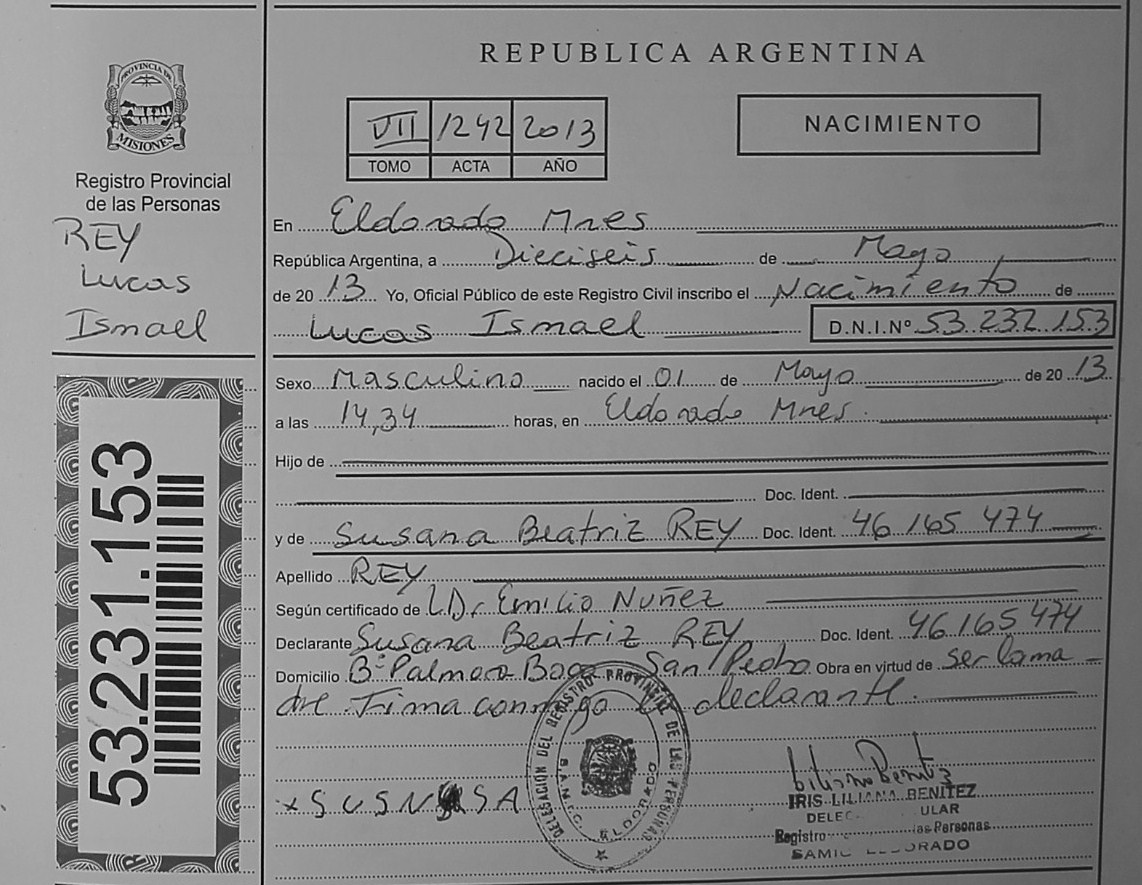 REPUBLICA ARGENTINA
PROVINCIA DE
MISIONES
Registro Provincial
de las Personas
REY
Lucas
Ismael
53.231.153
VII 1242 2013
TOMO ACTA AÑO
NACIMIENTO
En Eldorado Mnes
República Argentina, a Dieciseis de Mayo
de 20 13 Yo, Oficial Público de este Registro Civil inscribo el Nacimiento de
Lucas Ismael D.N.I.Nº 53.231.153
Sexo Masculino nacido el 01 de Mayo de 20 13
a las 14,34 horas, en Eldorado Mnes.
Hijo de
Doc. Ident.
y de Susana Beatriz REY Doc. Ident. 46.165 474
Apellido REY
Según certificado de Dr Emilio Nuñez
Declarante Susana Beatriz REY Doc. Ident. 46.165 474
Domicilio Bº Palmera Boca San Pedro Obra en virtud de ser la ma-
dre Firma conmigo la declarante.
x SUSNASA
DELEGACIÓN DEL REGISTRO PROVINCIAL DE LAS PERSONAS
ELDORADO
IRIS LILIANA BENITEZ
Registro las Personas
SAMIC ELDORADO